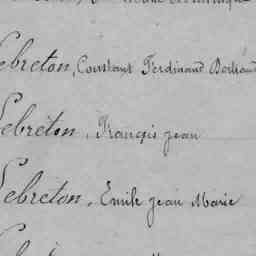 Lebreton, Constant Ferdinand Bertrand
Lebreton, François Jean
Lebreton, Emile Jean Marie